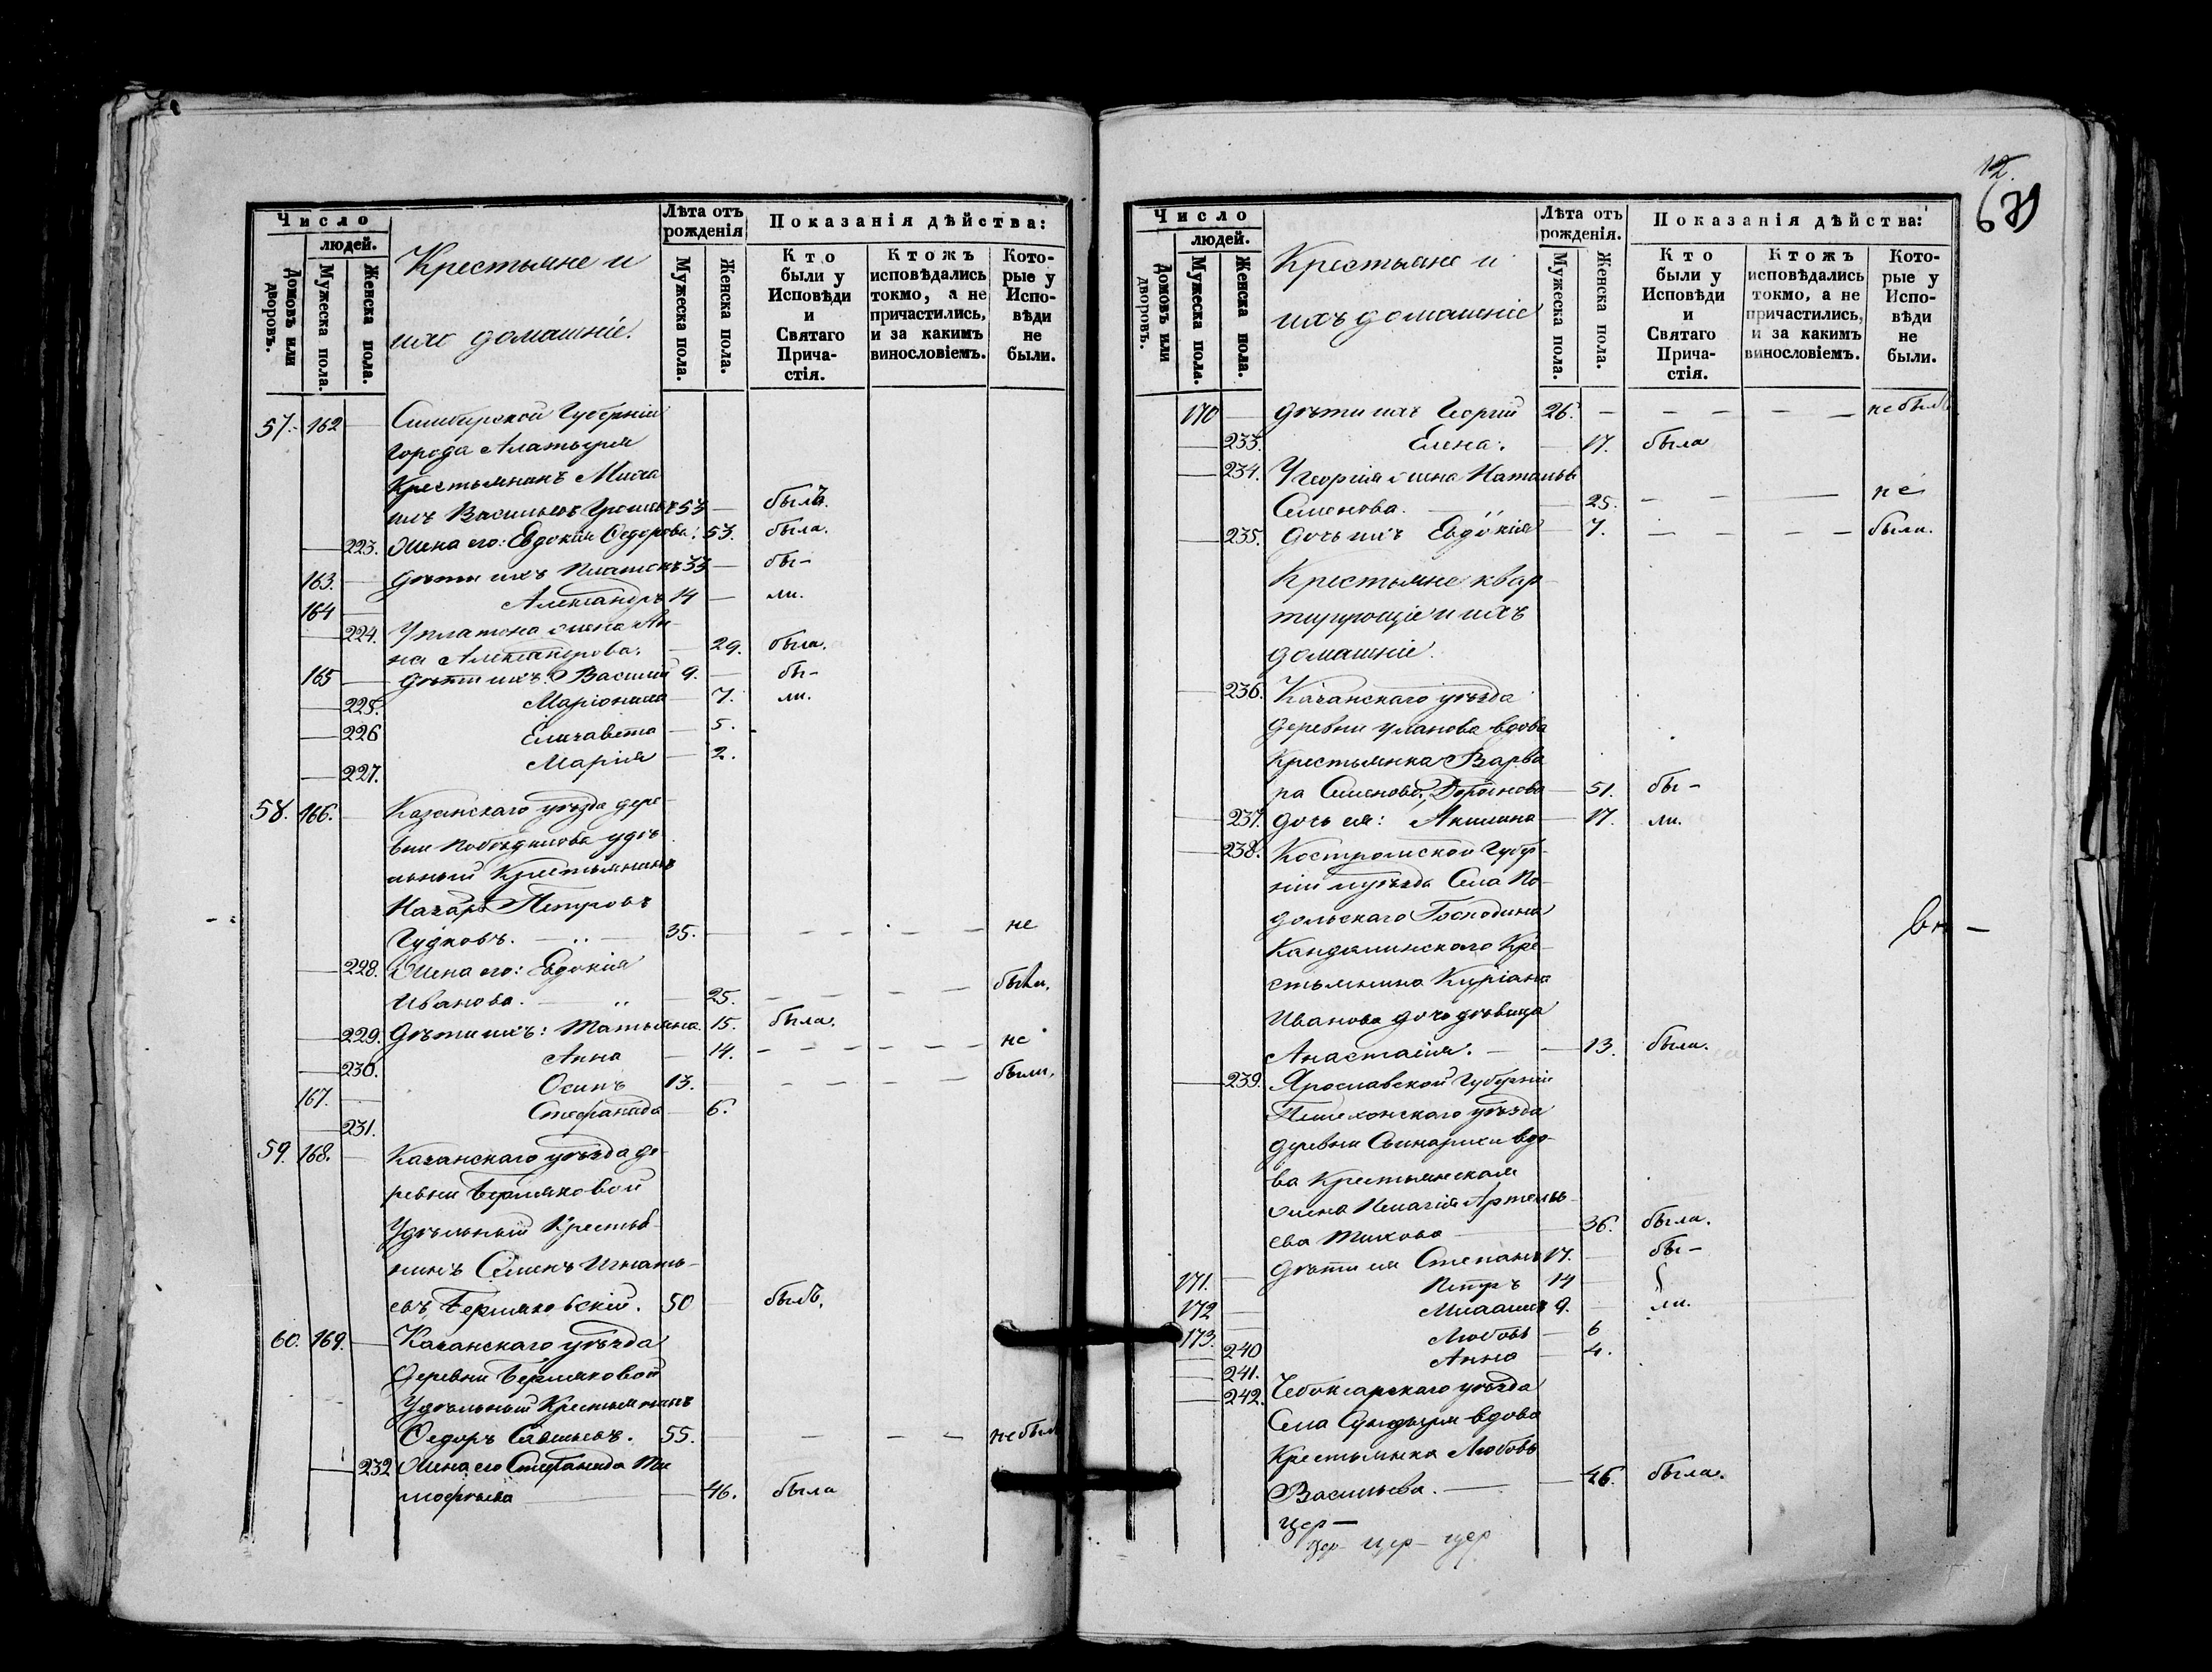 Число
людей.
Домовъ или дворовъ.
Мужеска пола.
Женска пола.
Крестьяне и
ихъ домашніе.
Лѣта отъ
рожденія
Мужеска пола.
Женска пола.
Показанія дѣйства:
Кто
были у
Исповѣди
и
Святаго
Прича-
стія.
Ктожъ
исповѣдались
токмо, а не
причастились,
и за какимъ
винословіемъ.
Кото-
рые у
Испо-
вѣди
не
были.
57. 162 — Симбирской Губерніи
города Алатыря
Крестьянинъ Миха
илъ Васильевъ 53 — былъ.
— 223. Жена его: Евдокія Ѳедорова: 53. была.
163. — дѣти ихъ Платонъ 33 — бы-
164 — Александръ 14 — ли.
— 224. У Платона жена Ан-
на Александрова. — 29. была.
165 — дѣти ихъ: Василій 9. — бы-
— 225. Маріонилла — 7. ли.
— 226 Елизавета — 5.
— 227. Марія — 2.
58. 166. — Казанскаго уѣзда дере-
вни Победилова удѣ
льный Крестьянинъ
Назаръ Петровъ
Гудковъ. — 35. — не
— 228. Жена его: Евдокія
Иванова. — 25. — были.
— 229. Дѣти ихъ: Татьяна. 15. была.
— 230. Анна — 14. — не
167. — Осипъ 13. — были.
— 231. Стефанида — 6.
59. 168. — Казанскаго уѣзда де-
ревни Бермяковой
Удѣльный Крестья-
нинъ Семенъ Игнать-
евъ Бермяковскій. 50 — былъ.
60. 169. — Казанскаго уѣзда
деревни Бермяковой
Удѣльный Крестьянинъ
Ѳедоръ Савельевъ. 55. — не былъ
— 232 Жена его Стефанида Ти
мофеева — 46. была
12.
Число
людей.
Домовъ или дворовъ.
Мужеска пола.
Женска пола.
Крестьяне и
ихъ домашніе
Лѣта отъ
рожденія.
Мужеска пола.
Женска пола.
Показанія дѣйства:
Кто
были у
Исповѣди
и
Святаго
Прича-
стія.
Ктожъ
исповѣдались
токмо, а не
причастились,
и за какимъ
винословіемъ.
Кото-
рые у
Испо-
вѣди
не
были.
170 — дѣти ихъ Георгій 26. — не былъ
— 233. Елена. — 17. была
— 234. У Георгія жена Наталья
Семенова. — 25. — не
— 235. дочь ихъ Евдокія — 7. — были.
Крестьяне квар-
тирующіе и ихъ
домашніе.
— 236. Казанскаго уѣзда
деревни Уланова вдова
Крестьянка Варва
ра Семенова — 51. бы-
— 237. дочь ея: Акилина — 17. ли.
— 238. Костромской Губер-
ніи и уѣзда Села По-
дольскаго Господина
Кре-
стьянина Киріана
Иванова дочь дѣвица
Анастасія. — 13. была.
— 239. Ярославской Губерніи
Пошехонскаго уѣзда
деревни вдо-
ва Крестьянская
жена Пелагія Артемь-
ева Тихова — 36. была.
171. — дѣти ея Степанъ 17. — бы-
172 — Петръ 14 —
173. — Михаилъ 9. — ли.
— 240 Любовь — 6
— 241. Анна — 4.
— 242. Чебоксарскаго уѣзда
Села вдова
Крестьянка Любовь
Васильева. — 46. была.
цер —
цер — цер — цер